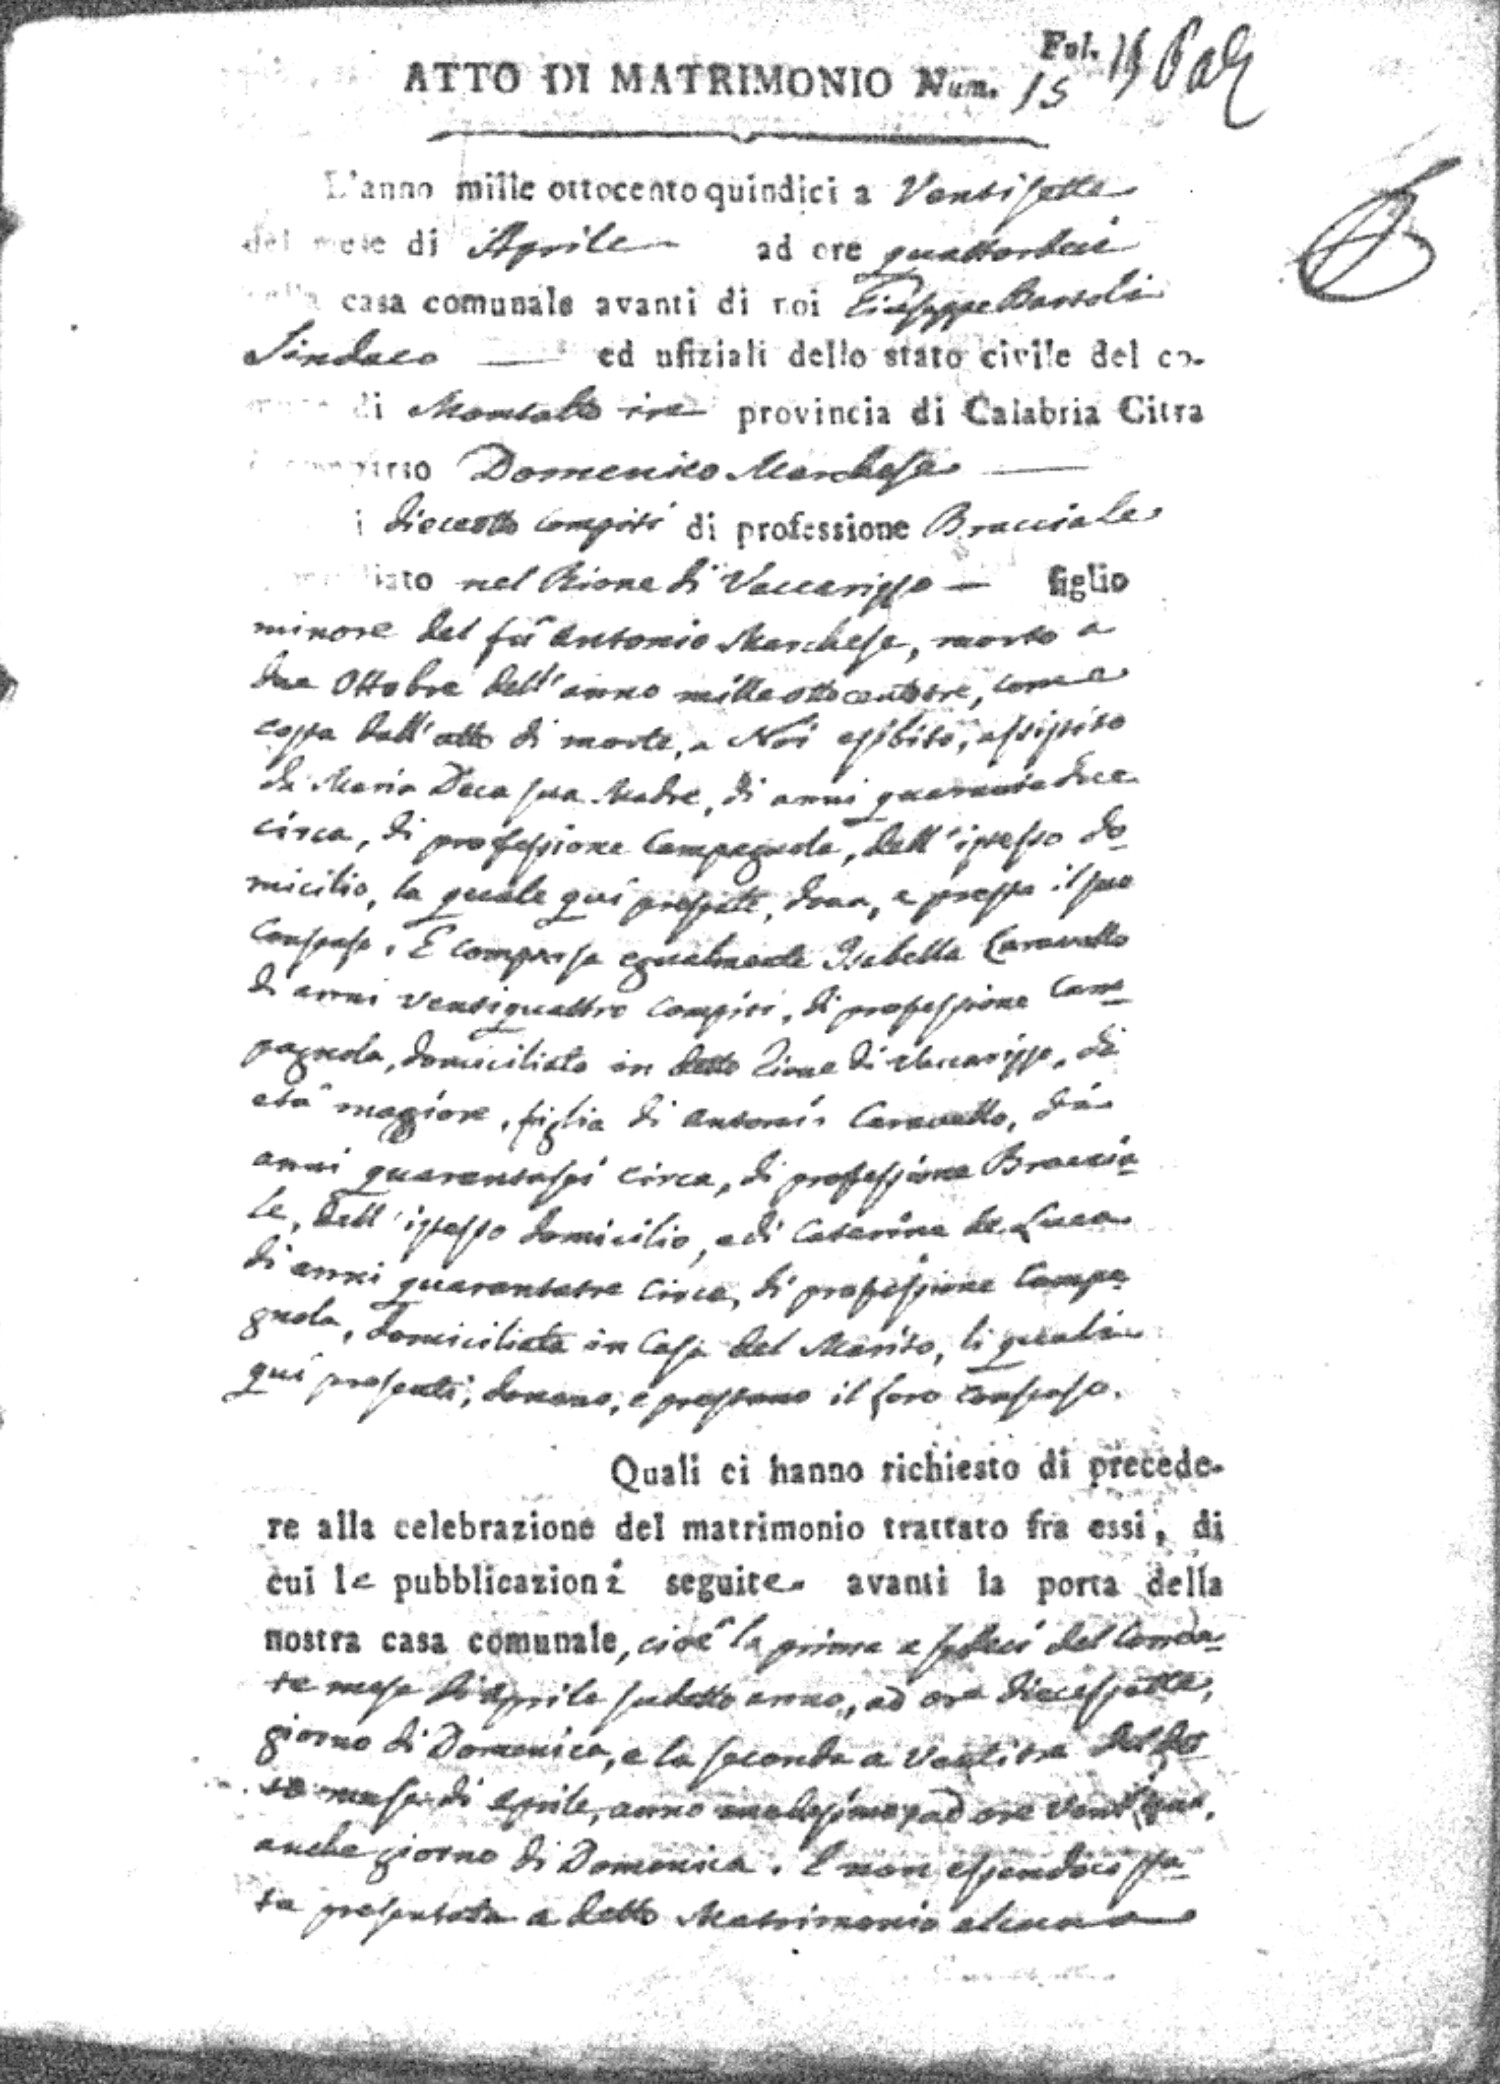 Fol. 15
ATTO DI MATRIMONIO Num. 15
L'anno mille ottocento quindici a Ventisette
del mese di Aprile ad ore quattordeci
nella casa comunale avanti di noi Giuseppe Bartoli
Sindaco ed ufiziali dello stato civile del co-
mune di Montalto in provincia di Calabria Citra
è comparso Domenico Marchese
i dieceotto compiti di professione Bracciale
domiciliato nel Rione di Vaccarizzo figlio
minore del fù Antonio Marchese, morto a
due Ottobre dell'anno mille ottocentotre, come
costa dall'atto di morte, a Noi esibito, assistito
da Maria Deca sua Madre, di anni quarantadue
circa, di professione Campagnola, dell'istesso do-
micilio, la quale quì presente, dona, e presta il suo
Consenso. È comparsa egualmente Isabella Caravetto
di anni ventiquattro compiti, di professione Cam-
pagnola, domiciliata in detto Rione di Vaccarizzo, di
età maggiore, figlia di Antonio Caravetto, di
anni quarantasei circa, di professione Braccia-
le, dell'istesso domicilio, e di Caterina de Luca
di anni quarantatre circa, di professione Campa-
gnola, domiciliata in Casa del Marito, li quali
quì presenti, donano, e prestano il loro consenso.
Quali ci hanno richiesto di precede-
re alla celebrazione del matrimonio trattato fra essi, di
cui le pubblicazioni seguite avanti la porta della
nostra casa comunale, cioè la prima a sedeci del Corren-
te mese di Aprile sudetto anno, ad ore diecesette,
giorno di Domenica, e la seconda a Ventitre del det-
to mese di Aprile, anno medesimo, ad ore
anche giorno di Domenica. E non essendoci sta-
ta presentata a detto Matrimonio alcuna